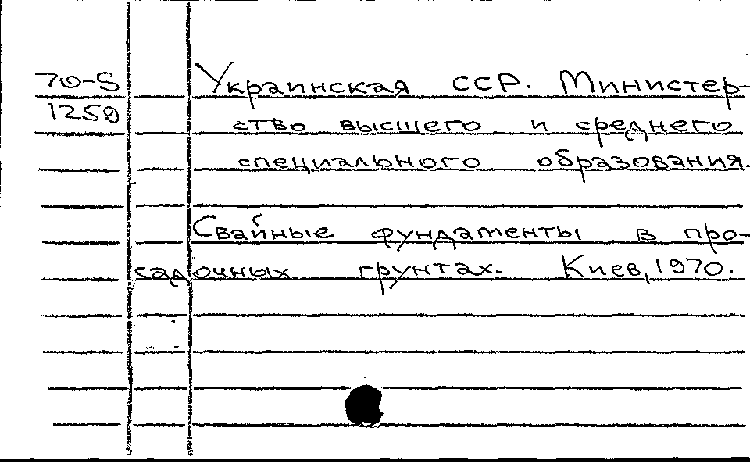 70-5 Украинская ССР. Министер-
1259 ство высшего и среднего
специального образования.
Свайные фундаменты в про-
садочных грунтах. Киев, 1970.